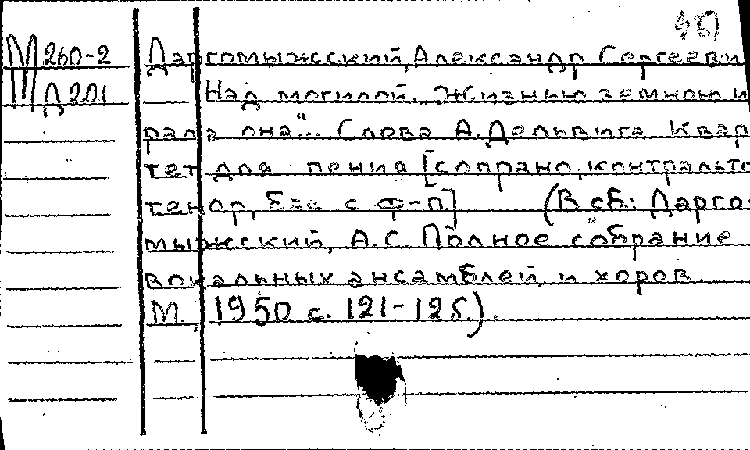 М260-2 Даргомыжский, Александр Сергееви
Д201 Над могилой. „Жизнью земною и
рала она"... Слова А. Дельвига. Квар
тет для пения [сопрано, контральто
тенор, бас с ф-п] (В сб.: Дарго-
мыжский, А.С. Полное собрание
вокальных ансамблей и хоров
М., 1950 с. 121-125.)